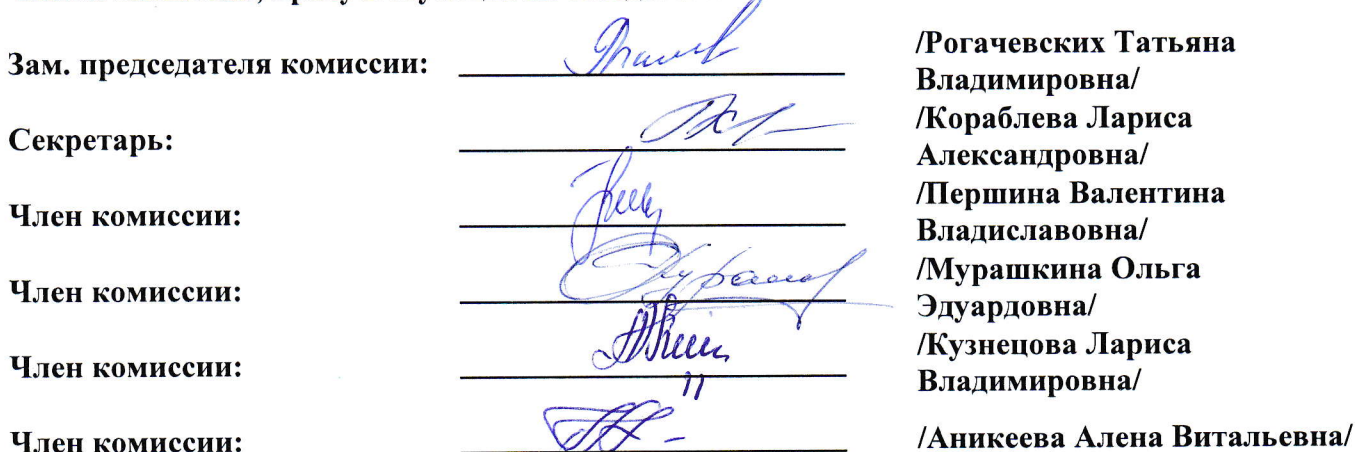 Зам. председателя комиссии: /Рогачевских Татьяна
Владимировна/
Секретарь: /Кораблева Лариса
Александровна/
Член комиссии: /Першина Валентина
Владиславовна/
Член комиссии: /Мурашкина Ольга
Эдуардовна/
Член комиссии: /Кузнецова Лариса
Владимировна/
Член комиссии: /Аникеева Алена Витальевна/